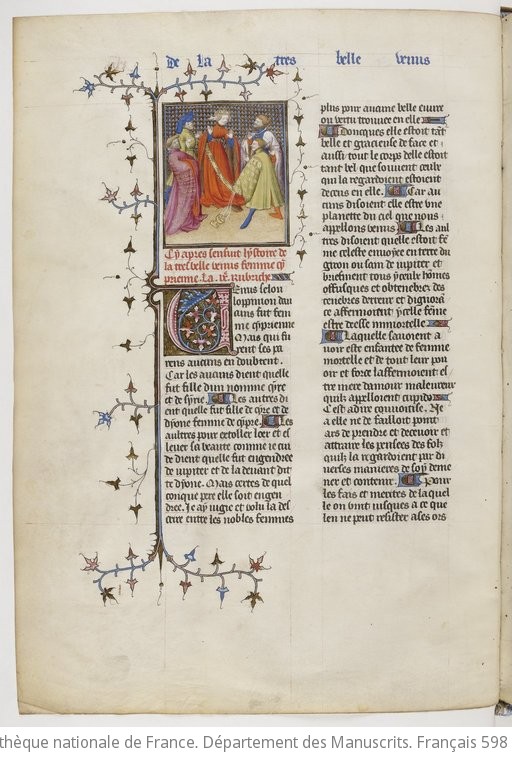 De la tres belle venus
Cy apres sensuit lystoire de
la tresbelle venus femme cy
prienne. La .vii.e Rubriche
Venus selon
loppinion dau
cuns fut fem
me cyprienne
Mais qui fu
rent ses pa
rens aucuns en doubtent.
Car les aucuns dient quelle
fut fille dun nomme cyre
et de syrie. Les autres di
ent quelle fut fille de cyre et de
dyone femme de cypre. Les
aultres pour extoller loer et es
lever sa beaute comme je cui
de dient quelle fut engendree
de iupiter et de la devant dit
te dyone. Mais certes de quel
conque pere elle soit engen
dree. Je ay iugie et volu la des
crire entre les nobles femmes
plus pour aucune belle euvre
ou vertu trouvee en elle
Adoncques elle estoit tant
belle et gracieuse de face et
aussi tout le corps delle estoit
tant bel que souvent ceulx
qui la regardoient estoient
deceus en elle. Car au
cuns disoient elle estre une
planette du ciel que nous
appellons venus. Les aul
tres disoient quelle estoit fe
me celeste envoyee en terre du
giron ou sain de iupiter et
briefment tous yceulx homes
offusques et obtenebrez des
tenebres derreur et dignora
ce affermoient ycelle feme
estre deesse immortelle
Laquelle savoient a
voir este enfantee de femme
mortelle et de tout leur pou
oir et force laffermoient es
tre mere damour maleureux
quilz appelloient cupido
Cest adire convoitise. Ne
a elle ne de failloit point
ars de prendre et decevoir et
attraire les pensees des folz
quilz la regardoient par di
verses manieres de soy deme
ner et contenir. Pour
les fais et merites de laquel
le on vint iusques a ce que
len ne peut resister a ses ors
thèque nationale de France. Département des Manuscrits. Français 598